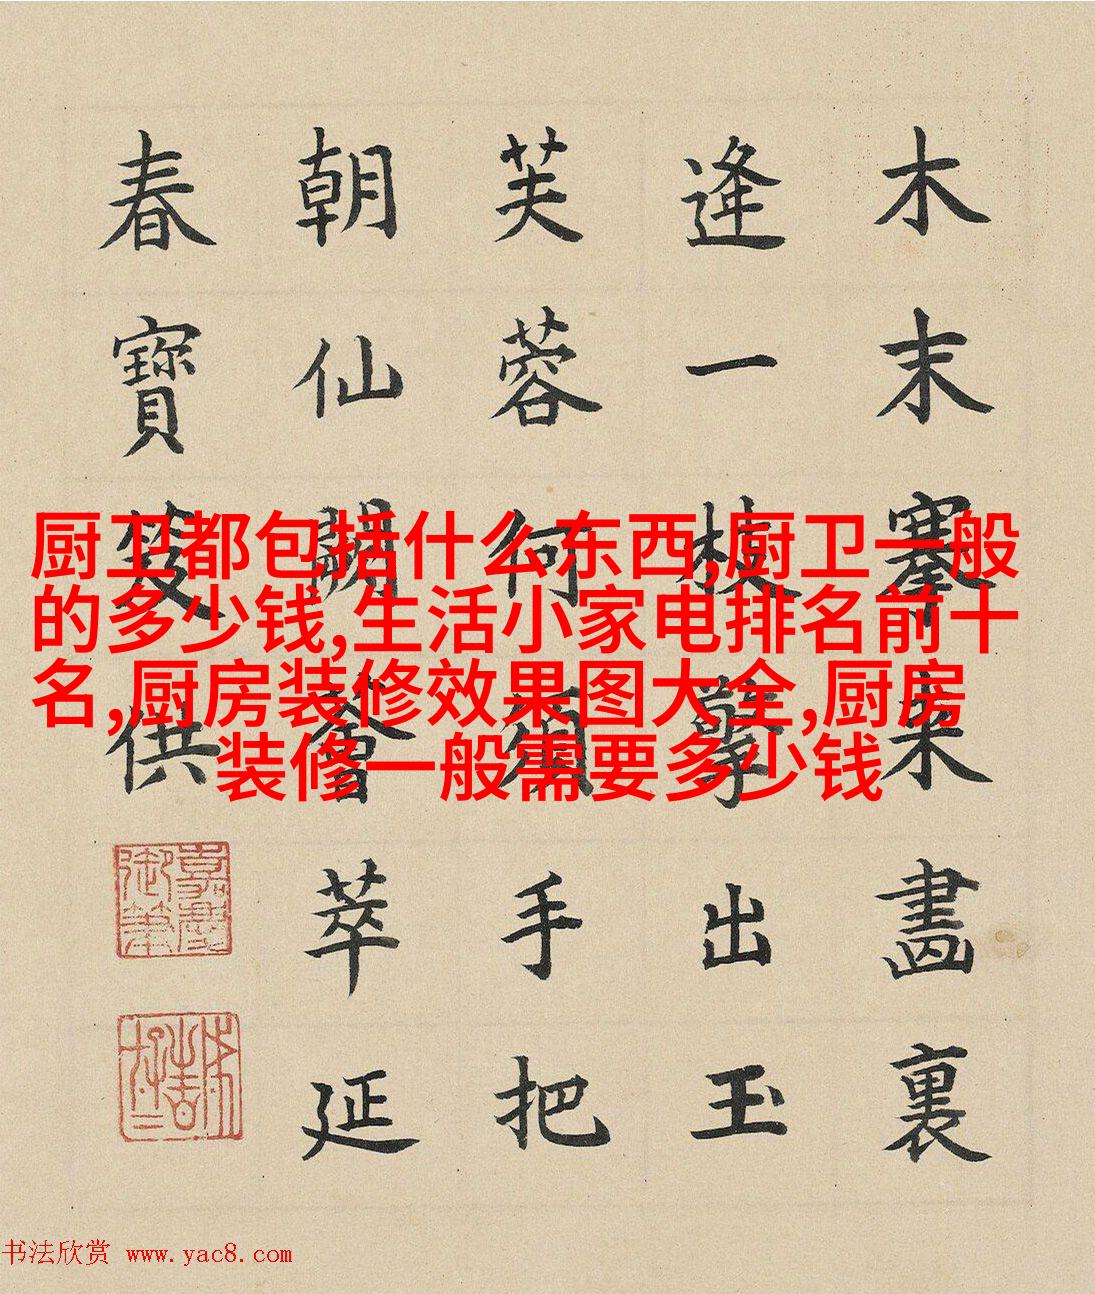 木末搴來畫裏
逢一枝擎出玉
芙蓉何須手把
朝仙闕薈萃延
春寶笈供
嘉慶御筆
厨卫都包括什么东西,厨卫一般
的多少钱,生活小家电排名前十
名,厨房装修效果图大全,厨房
装修一般需要多少钱
书法欣赏 www.yac8.com